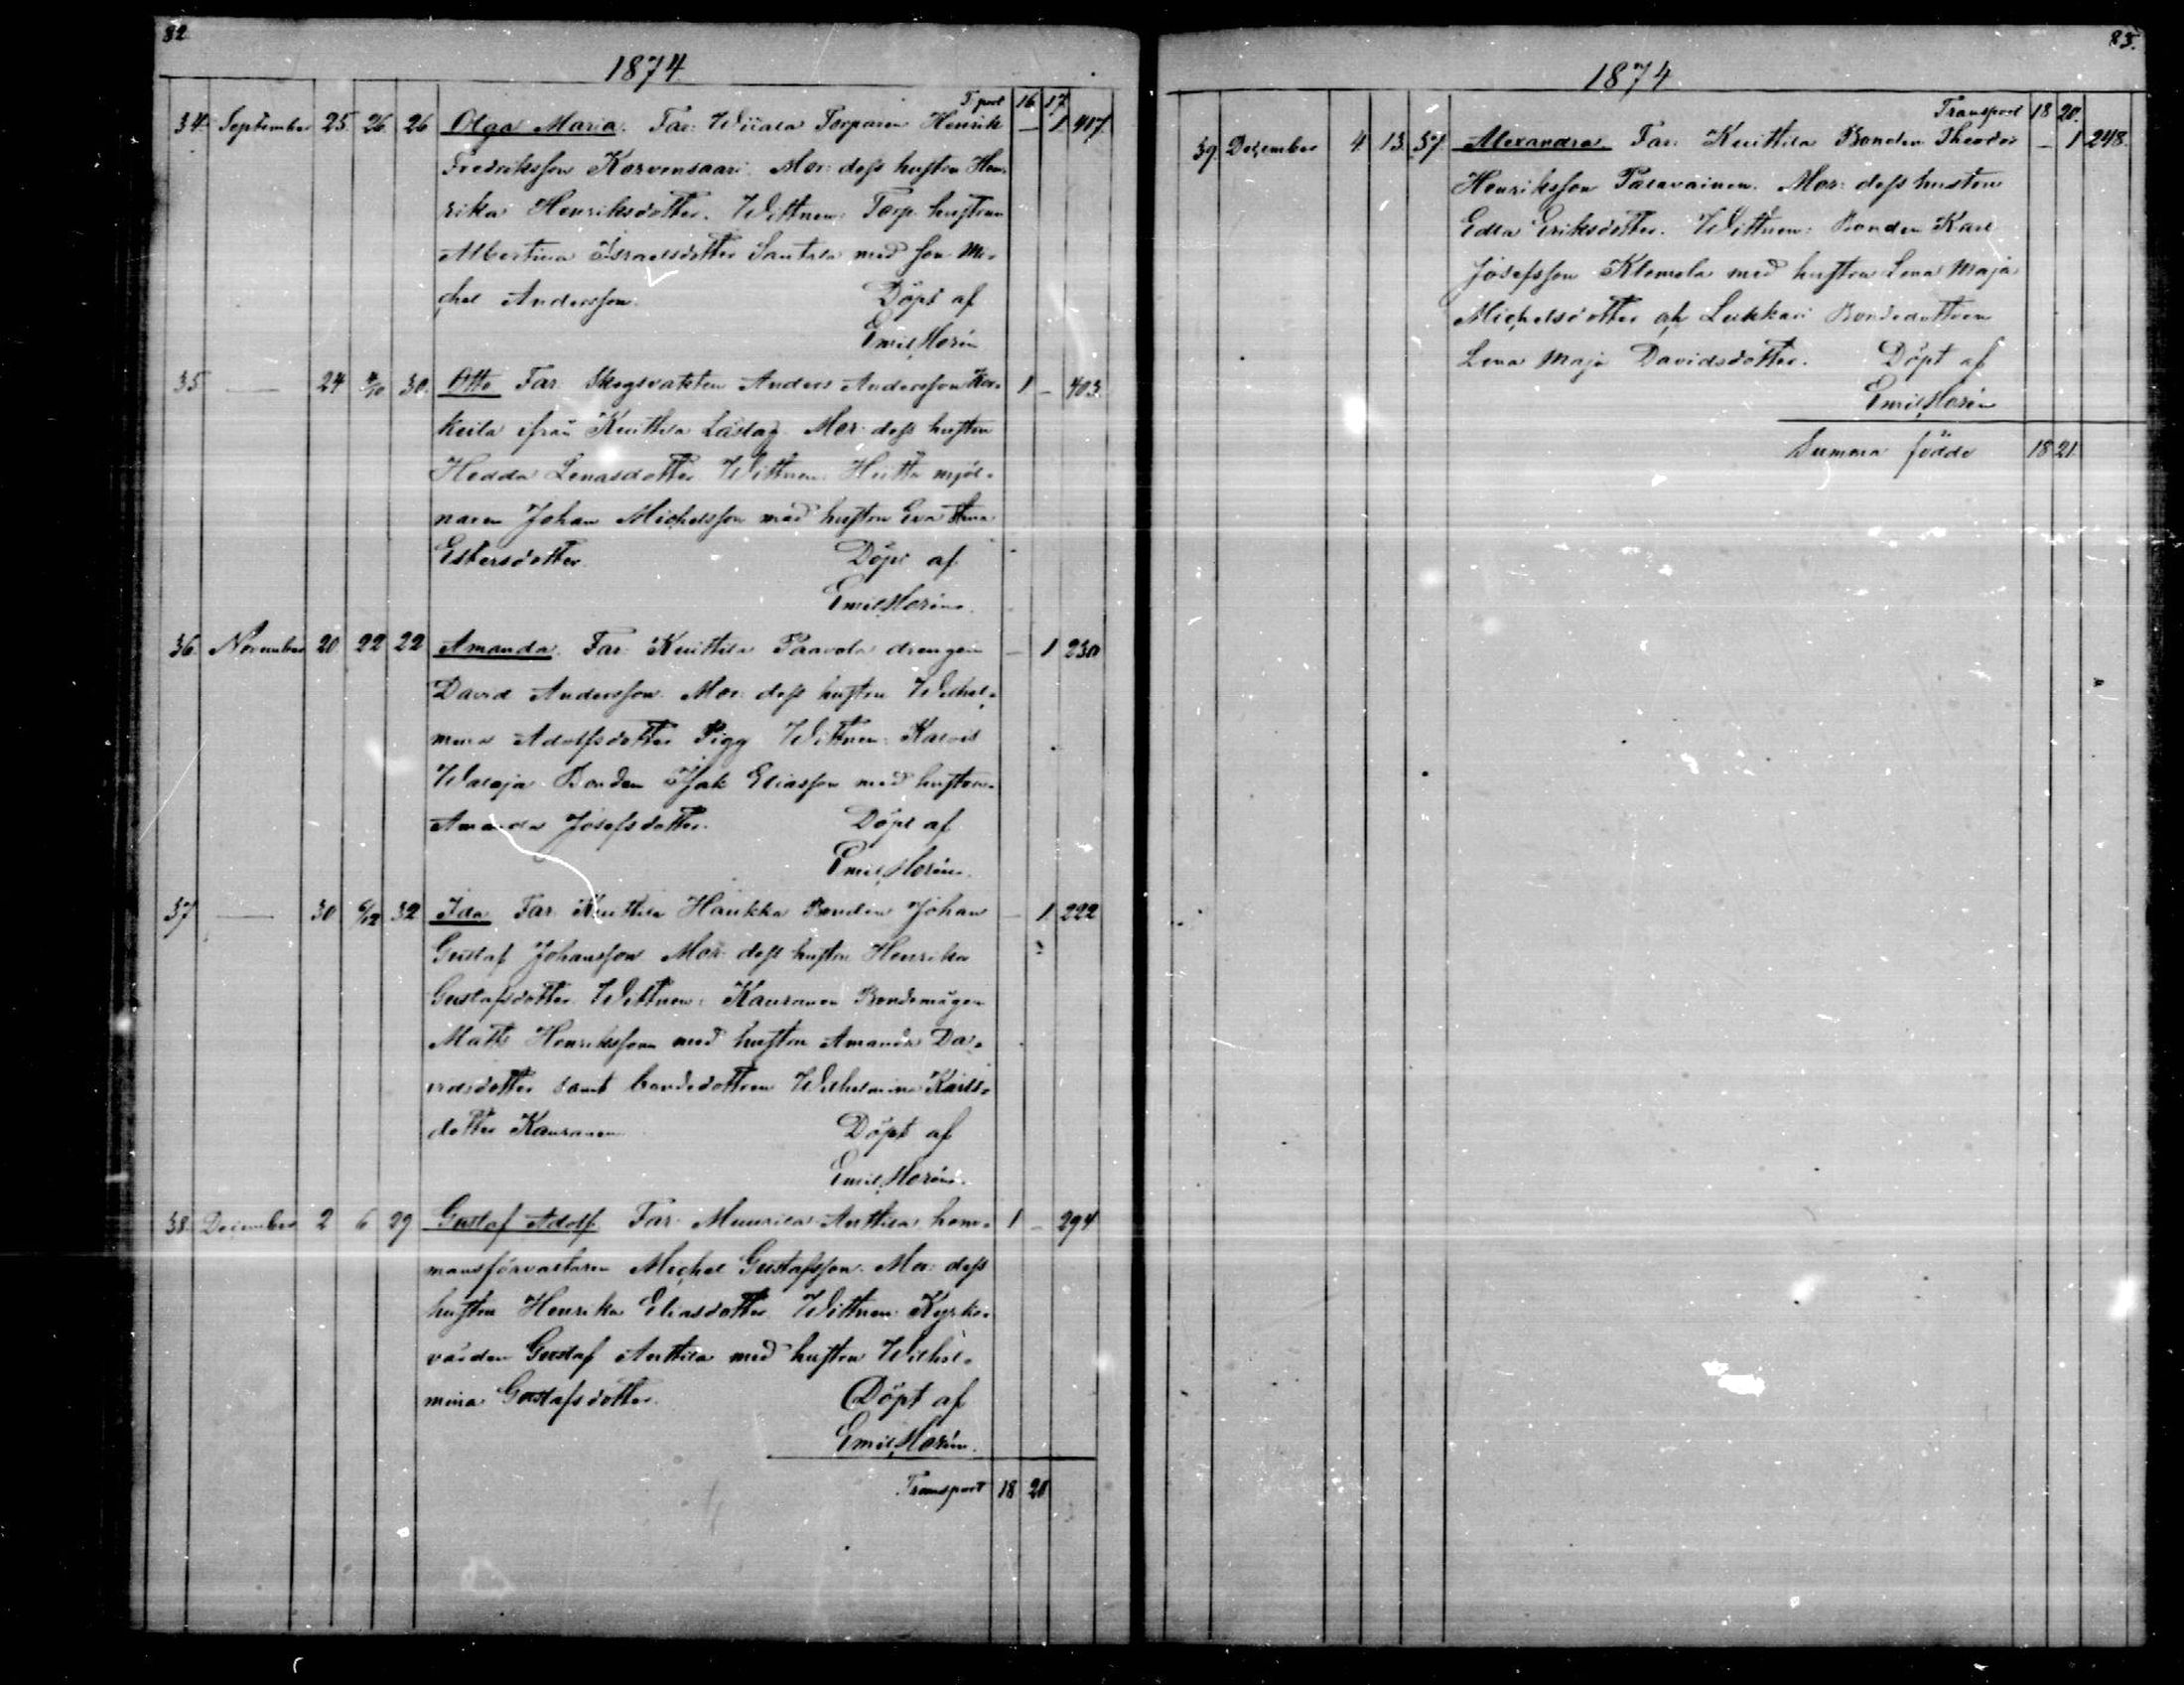 82
1874
T.port 16 17
34. September 25. 26. 26 Olga Maria. Far: Wiiala Torparen Henrik — 1 407.
Fredriksson Korvensaari. Mor: dess hustru Hen-
rika Henriksdotter. Wittnen: Torp. hustrun
Albertina Israelsdotter Santala med son Mi-
chel Andersson. Döpt af
Emil Morén
35 — 24 4/10 30. Otto Far: Skogsvakten Anders Andersson Kos-
1 – 403.
keila ifrån Kuittila Låslag. Mor: dess hustru
Hedda Lenasdotter Wittnen: Huitta mjöl-
naren Johan Michelsson med hustru Eva Stina
Estersdotter. Döpt af
Emil Morén.
36. November 20. 22 22 Amanda. Far: Kuittila Paavola drengen — 1 230
David Andersson. Mor: dess hustru Wilhel-
mina Adolfsdotter Pigg Wittnen:
Walaja Bonden Isak Eliasson med hustru
Amanda Josefsdotter. Döpt af
Emil Morén.
37 — 30 6/12 32 Ida Far: Kuittila Haukka Bonden Johan — 1 222
Gustaf Johansson Mor: dess hustru Henrika
Gustafsdotter. Wittnen: Kauranen Bondemågen
Matts Henriksson med hustru Amanda Da-
vidsdotter samt bondedottren Wilhelmina Karls-
dotter Kauranen Döpt af
Emil Morén.
38. December 2 6 29 Gustaf Adolf. Far: Muurila Anttila hem- 1 – 294
mansförvaltaren Michel Gustafsson. Mor: dess
hustru Henrika Eliasdotter. Wittnen: Kyrko-
värden Gustaf Anttila med hustru Wilhel-
mina Gustafsdotter. Döpt af
Emil Morén.
Transport 18 20
83.
1874
Transport 18 20.
39. December 4 13. 37 Alexandra Far: Kuittila Bonden Theodor — 1 248.
Henriksson Palavainen. Mor: dess hustru
Edla Eriksdotter. Wittnen: Bonden Karl
Josefsson Klemola med hustru Lena Maja
Michelsdotter och Lukkari Bondedottren
Lena Maja Davidsdotter. Döpt af
Emil Morén
Summa födde 18 21.